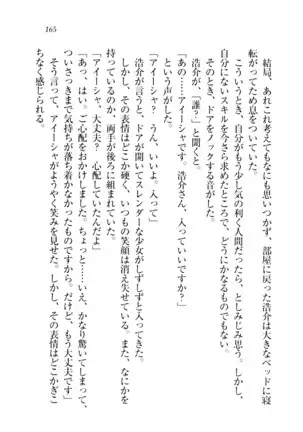 165
結局、あれこれ考えてもなにも思いつかず、部屋に戻った浩介は大きなベッドに寝
転がってため息をついていた。
こういうとき、自分がもう少し気の利く人間だったら、としみじみ思う。しかし、
自分にないスキルをいきなり求めたところで、どうにかなるものでもない。
そのとき、ドアをノックする音がした。
浩介が、「誰？」と聞くと、
「あの……アイーシャです。浩介さん、入っていいですか？」
という声がした。
「アイーシャ？　うん、いいよ。入って」
浩介が応じると、ドアが開いてスレンダーな少女がしずしずと入ってきた。
しかし、その表情はどこか硬く、いつもの笑顔は消え失せている。また、なにかを
持っているのか、両手が後ろに組まれていた。
「アイーシャ、大丈夫？　心配していたんだよ」
「あっ、はい。ご心配をおかけしました。ちょっと……いえ、かなり驚いてしまって、
ついさっきまで気持ちが落ち着かなかったものですから。だけど、もう大丈夫です」
そう言って、アイーシャがようやく笑みを見せた。しかし、その表情はどこかぎこ
ちなく感じられる。